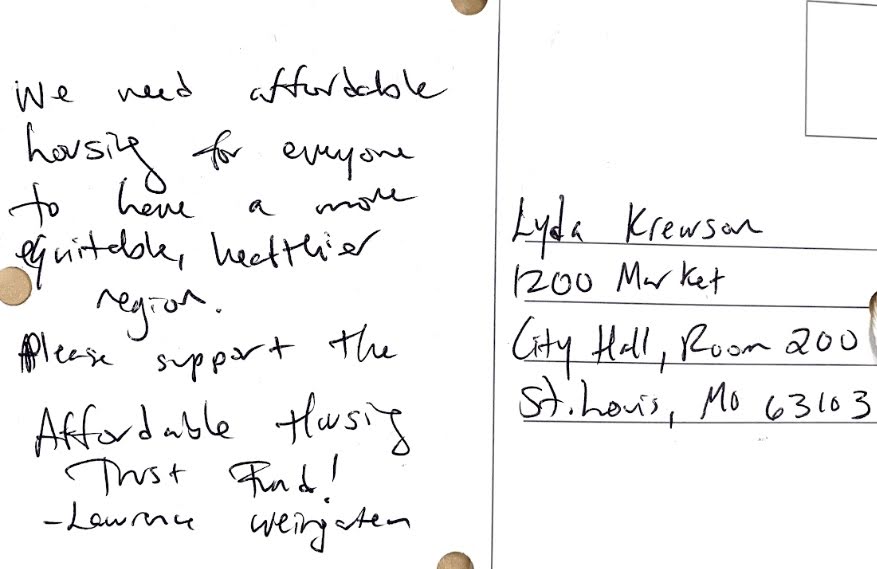 We need affordable
housing for everyone
to have a more
equitable, healthier
region.
Please support the
Affordable Housing
Trust Fund!
-Lawrence Weingarten
Lyda Krewson
1200 Market
City Hall, Room 200
St. Louis, Mo 63103